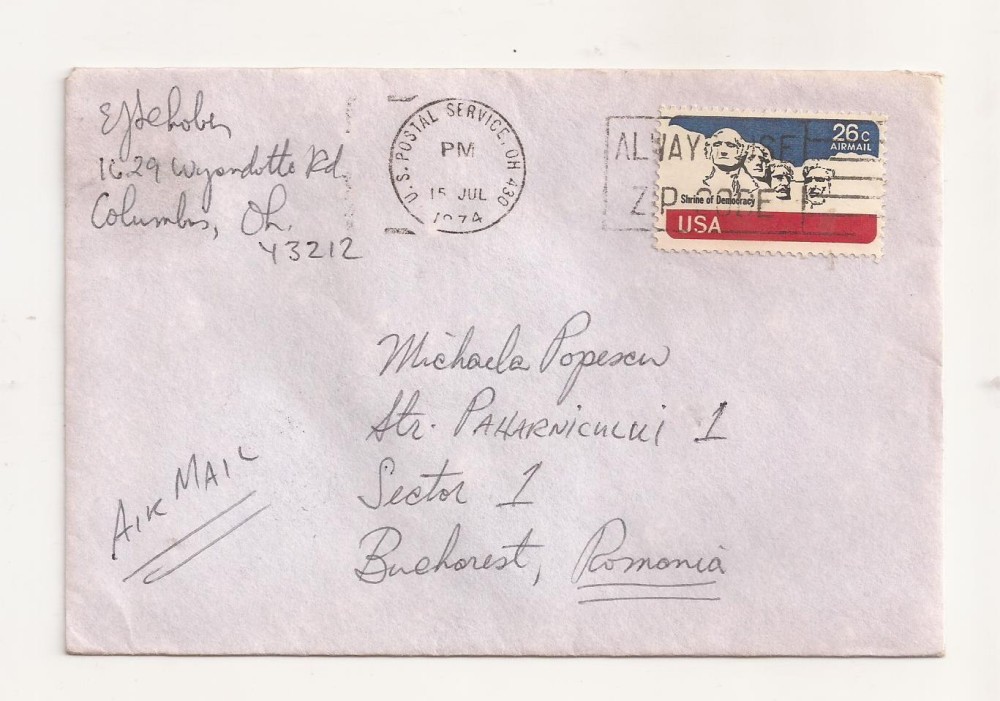 EJ Schober
1629 Wyandotte Rd
Columbus, Oh.
43212
U.S. POSTAL SERVICE, OH 430
PM
15 JUL
1974
ALWAYS USE
ZIP CODE
26c
AIRMAIL
Shrine of Democracy
USA
Michaela Popescu
Str. PAHARNICULUI 1
Sector 1
Bucharest, Romania
AIR MAIL